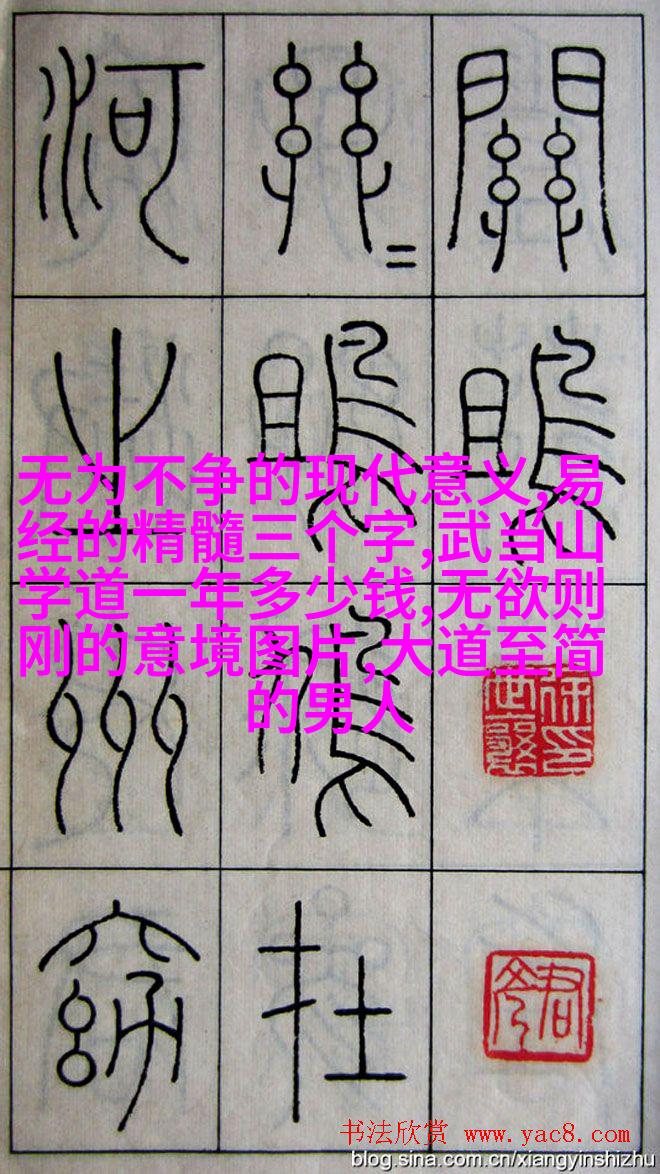 關雎
雎鳩在
河之州窈
无为不争的现代意义,易
经的精髓三个字,武当山
学道一年多少钱,无欲则
刚的意境图片,大道至简
的男人
书法欣赏 www.yac8.com
blog.sina.com.cn/xiangyinshizhu